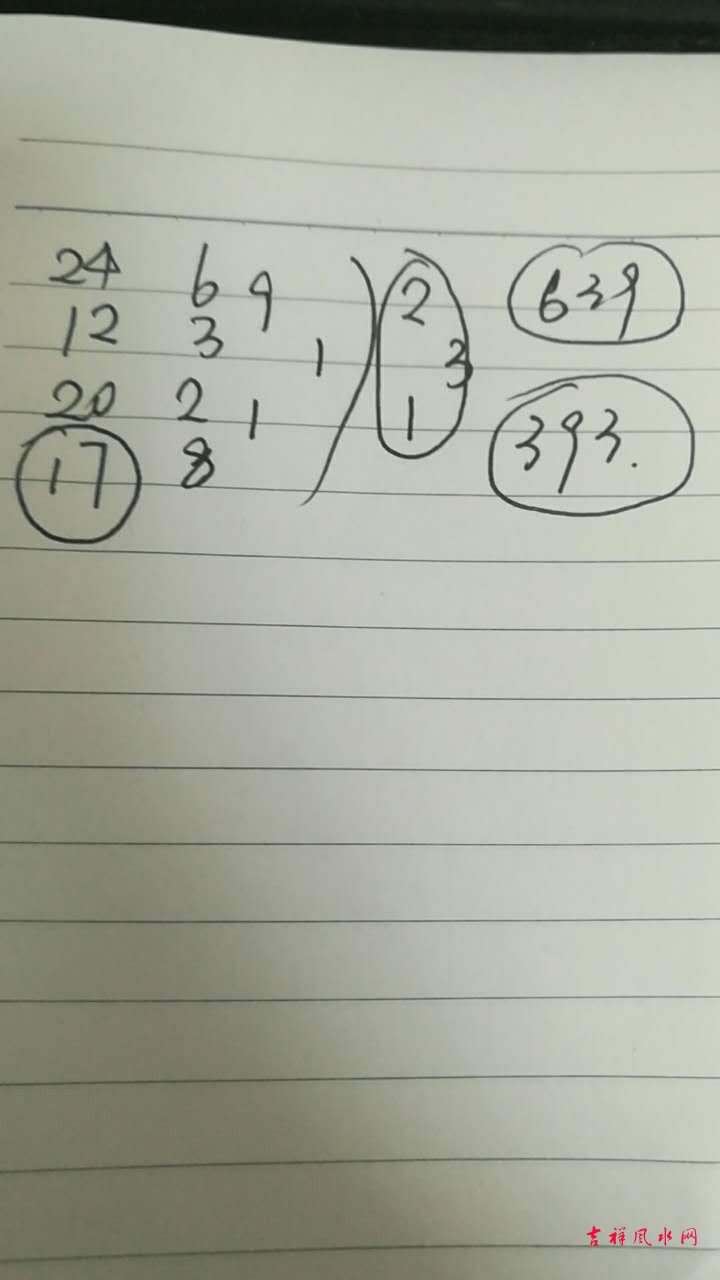 24 6 9 2 639
12 3 1 3
20 2 1 1 393.
17 8
吉祥风水网